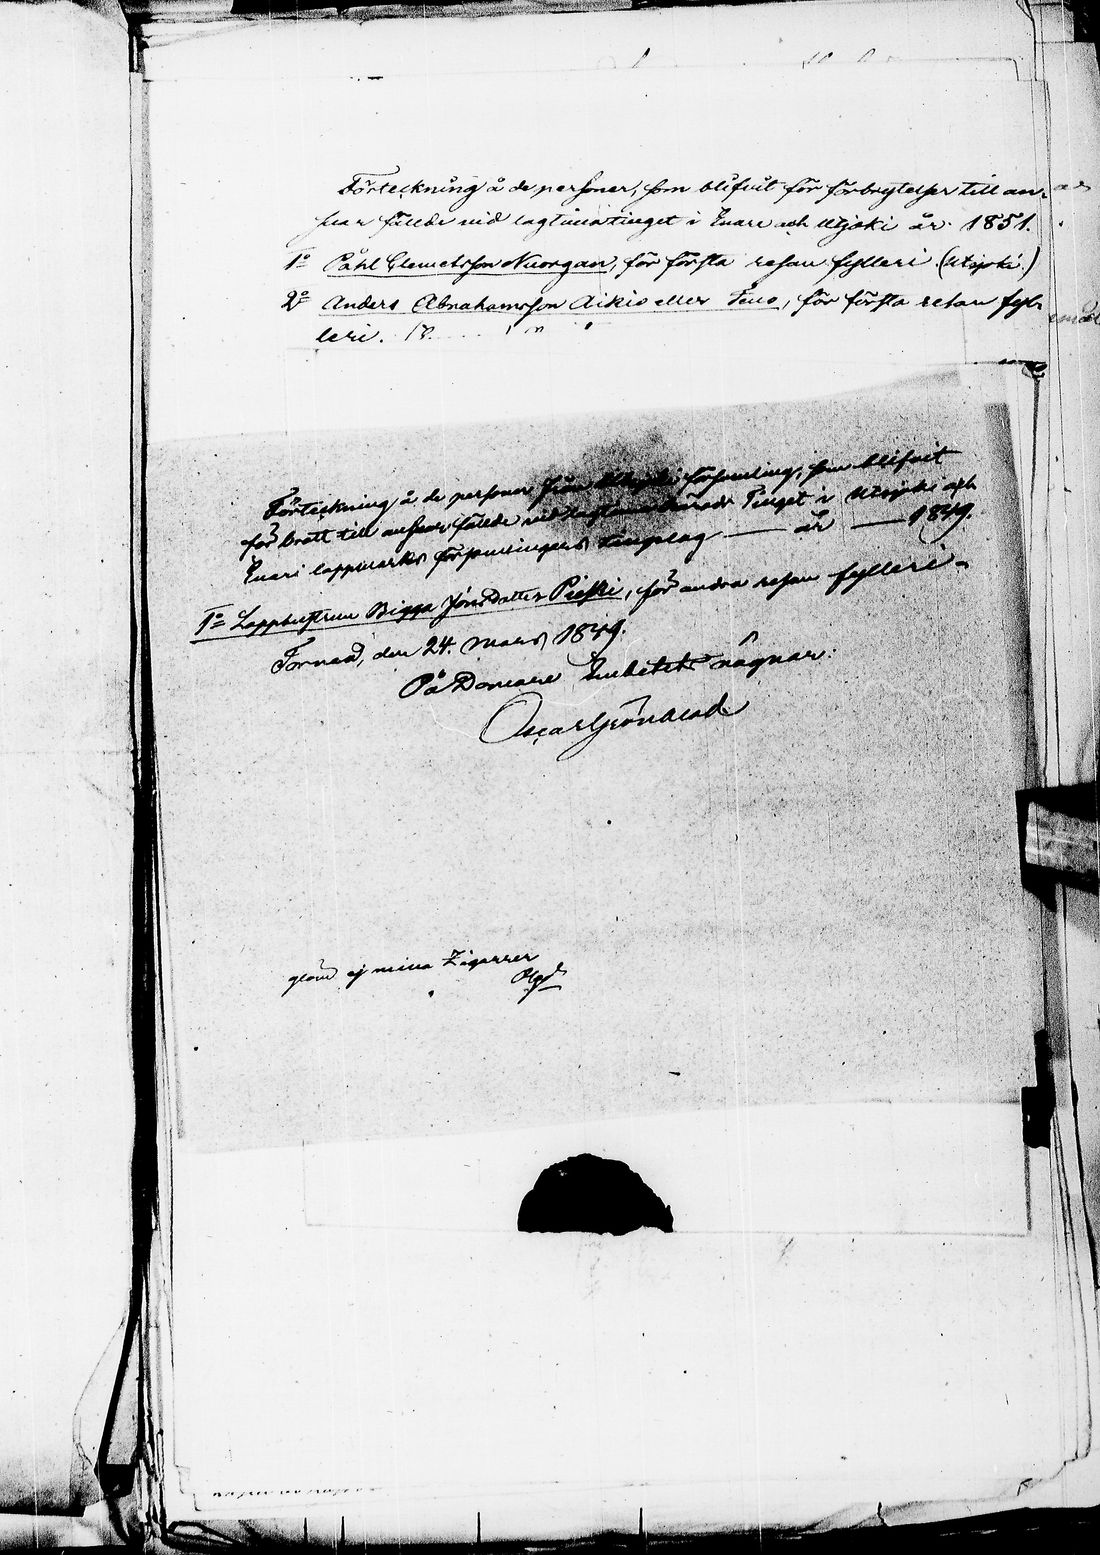 Förteckning å de personer, som blifvit för förbrytelser till an-
svar fällde vid lagtimatinget i Enare och Utsjoki år 1851.
1o Påhl Clemetsson Nuorgan, för första resan fylleri. (Utsjoki.)
2o Anders Abrahamsson Aikio eller Teno, för första resan fyl-
leri.
Förteckning å de personer från Utsjoki församling, som blifvit
för brott till ansvar fällde vid lagtima Härads Tinget i Utsjoki och
Enari lappmarks församlingars tingslag — år — 1849.
1o Lapphustrun Bigga Jönsdotter Pieski, för andra resan fylleri.
Torneå, den 24. Mars 1849.
På Domare Embetets vägnar:
Oscar Grönblad
glöm ej mina Zigarrer